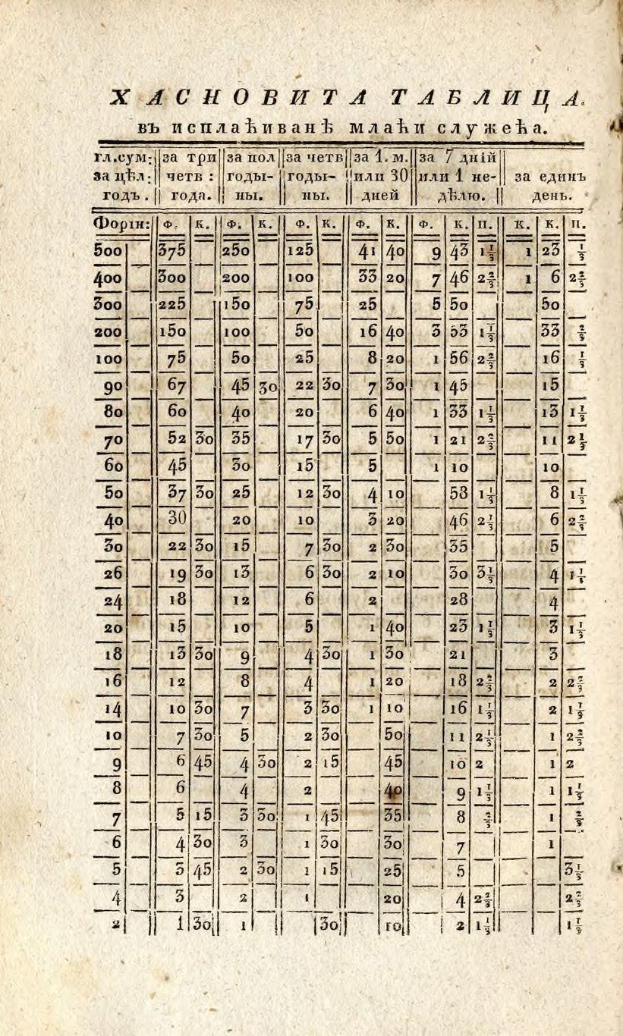 ХАСНОВИТА ТАБЛИЦА.
въ исплаћиванѣ млаћи служећа.
гл.сум: за три за пол за четв за 1. м. за 7 дній
за цѣл: четв : годы- годы- или 30 или 1 не- за единъ
годъ . года. ны. ны. дней дѣлю. день.
Форін: Ф. К. Ф. К. Ф. К. Ф. К. Ф. К. П. К. К. П.
500 375 250 125 41 40 9 43 1 1/3 1 23 1/3
400 300 200 100 33 20 7 46 2 2/3 1 6 2 2/3
300 225 150 75 25 5 50 50
200 150 100 50 16 40 3 53 1 1/3 33 2/3
100 75 50 25 8 20 1 56 2 2/3 16 1/3
90 67 45 30 22 30 7 30 1 45 15
80 60 40 20 6 40 1 33 1 1/3 13 1 1/3
70 52 30 35 17 30 5 50 1 21 2 2/3 11 2 1/3
60 45 30 15 5 1 10 10
50 37 30 25 12 30 4 10 58 1 1/3 8 1 1/3
40 30 20 10 3 20 46 2 2/3 6 2 2/3
30 22 30 15 7 30 2 30 35 5
26 19 30 13 6 30 2 10 30 3 1/3 4 1 1/3
24 18 12 6 2 28 4
20 15 10 5 1 40 23 1 1/3 3 1 1/3
18 13 30 9 4 30 1 30 21 3
16 12 8 4 1 20 18 2 2/3 2 2 2/3
14 10 30 7 3 30 1 10 16 1 1/3 2 1 1/3
10 7 30 5 2 30 50 11 2 2/3 1 2 2/3
9 6 45 4 30 2 15 45 10 2 1 2
8 6 4 2 40 9 1 1/3 1 1 1/3
7 5 15 3 30 1 45 35 8 2/3 1 2/3
6 4 30 3 1 30 30 7 1
5 3 45 2 30 1 15 25 5 3 1/3
4 3 2 1 20 4 2 2/3 2 2/3
2 1 30 1 30 10 2 1 1/3 1 1/3